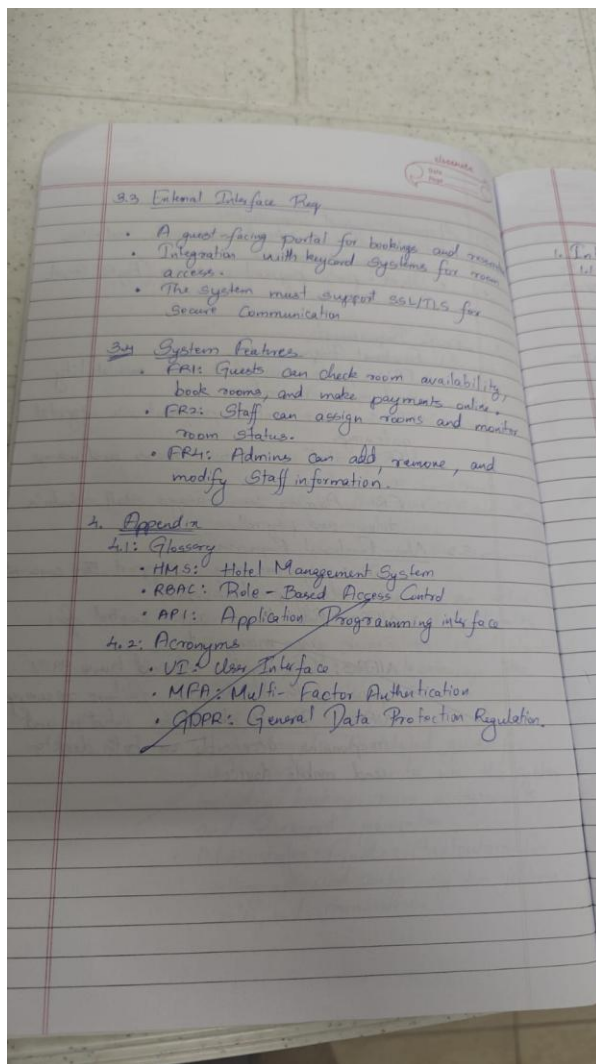 classmate
Date
Page
3.3 External Interface Req
• A guest-facing portal for bookings and
• Integration with keycard systems for room
access.
• The system must support SSL/TLS for
Secure Communication
3.4 System Features
• FR1: Guests can check room availability,
book rooms, and make payments online.
• FR2: Staff can assign rooms and monitor
room status.
• FR4: Admins can add, remove, and
modify Staff information.
4. Appendix
4.1: Glossary
• HMS: Hotel Management System
• RBAC: Role-Based Access Control
• API: Application Programming interface
4.2: Acronyms
• UI: User Interface
• MFA: Multi-Factor Authentication
• GDPR: General Data Protection Regulation.
1. In
1.1